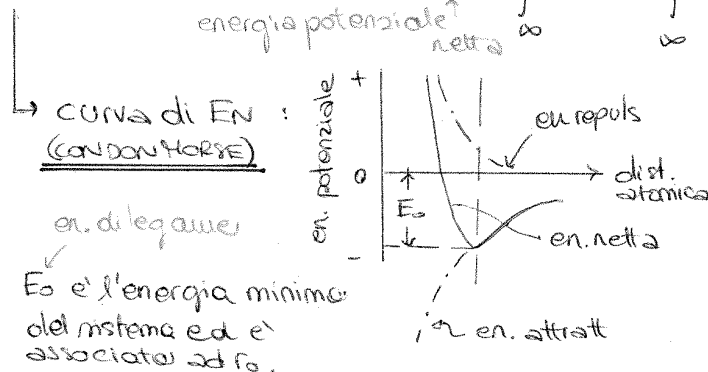 energia potenziale
netta
∞ ∞
→ curva di EN :
(CONDON MORSE)
en. di legame
E₀ è l'energia minima
del sistema ed è
associata ad r₀.
en. potenziale
+
0
-
E₀
en repuls
dist.
atomica
en. netta
en. attratt